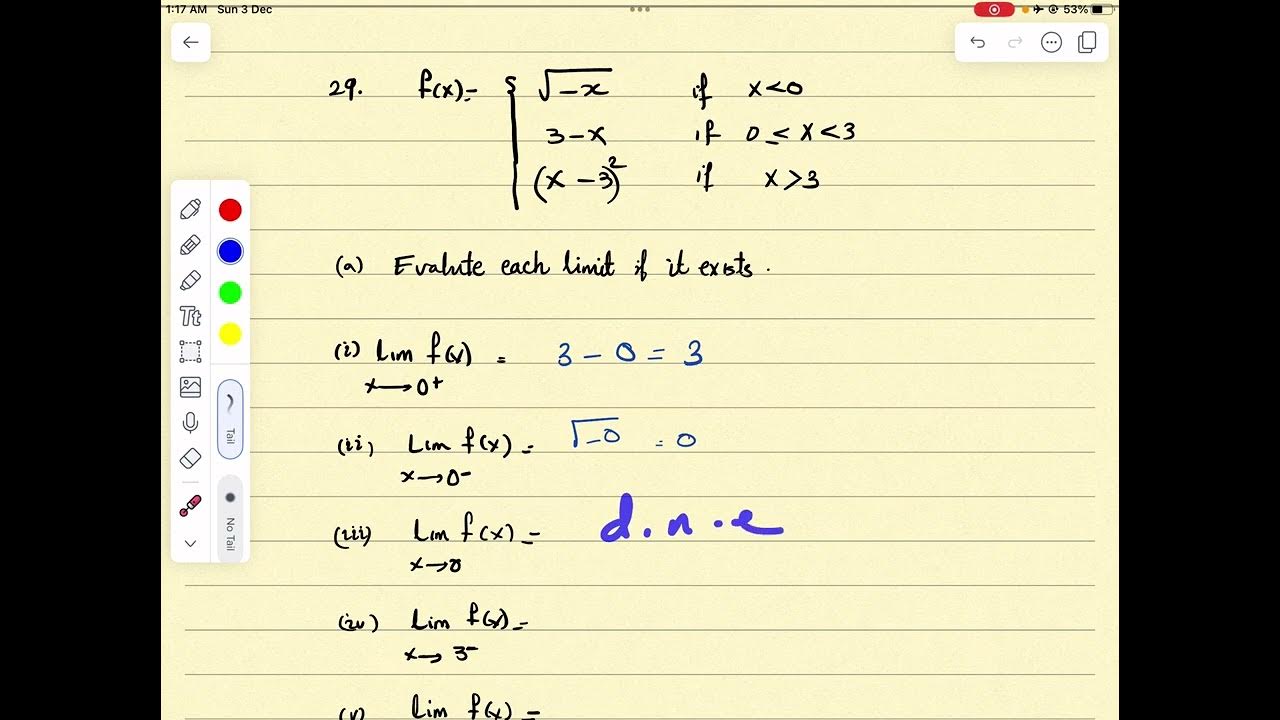 1:17 AM Sun 3 Dec
53%
29. f(x)= { √-x if x<0
3-x if 0≤x<3
(x-3)² if x>3
(a) Evalute each limit if it exists.
(i) Lim f(x) = 3-0=3
x→0+
(ii) Lim f(x) = √-0 = 0
x→0-
(iii) Lim f(x) = d.n.e
x→0
(iv) Lim f(x) =
x→3-
(v) Lim f(x) =
Tt
Tail
No Tail